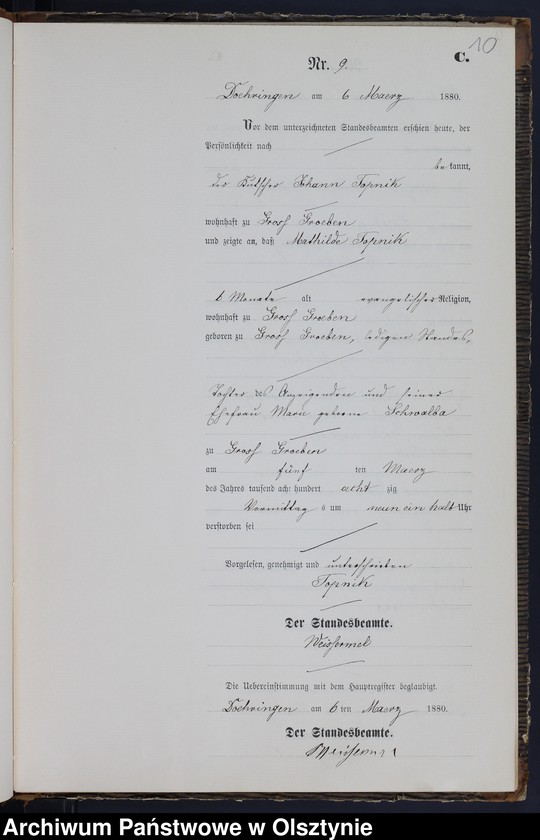 10
C.
Nr. 9.
Doehringen am 6 Maerz 1880.
Vor dem unterzeichneten Standesbeamten erschien heute, der
Persönlichkeit nach
be kannt,
der Kutscher Johann Topnik
wohnhaft zu Gross Groeben
und zeigte an, daß Mathilde Topnik
6 Monate alt evangelischer Religion,
wohnhaft zu Gross Groeben
geboren zu Gross Groeben, ledigen Standes,
Tochter des Anzeigenden und seiner
Ehefrau Marie geborne Schwalba
zu Gross Groeben
am fünf ten Maerz
des Jahres tausend acht hundert acht zig
Vormittag s um neun ein halb Uhr
verstorben sei
Vorgelesen, genehmigt und unterschrieben
Topnik
Der Standesbeamte.
Weissermel
Die Uebereinstimmung mit dem Hauptregister beglaubigt.
Doehringen am 6 ten Maerz 1880.
Der Standesbeamte.
Weissermel
Archiwum Państwowe w Olsztynie